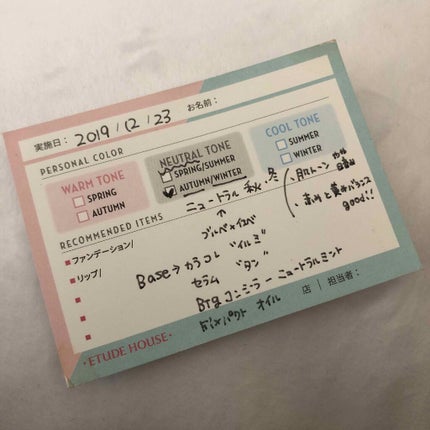 実施日： 2019/12/23 お名前：
PERSONAL COLOR
WARM TONE
SPRING
AUTUMN
NEUTRAL TONE
SPRING/SUMMER
AUTUMN/WINTER
COOL TONE
SUMMER
WINTER
ニュートラル 秋、冬
↑
ブルベ×イエベ
青みと黄みバランス
good!!
RECOMMENDED ITEMS
ファンデーション/
リップ/
Base→カラコレ "イルミ"
セラム "タン"
ニュートラルミント
Fixパクト オイル
店 担当者：
ETUDE HOUSE